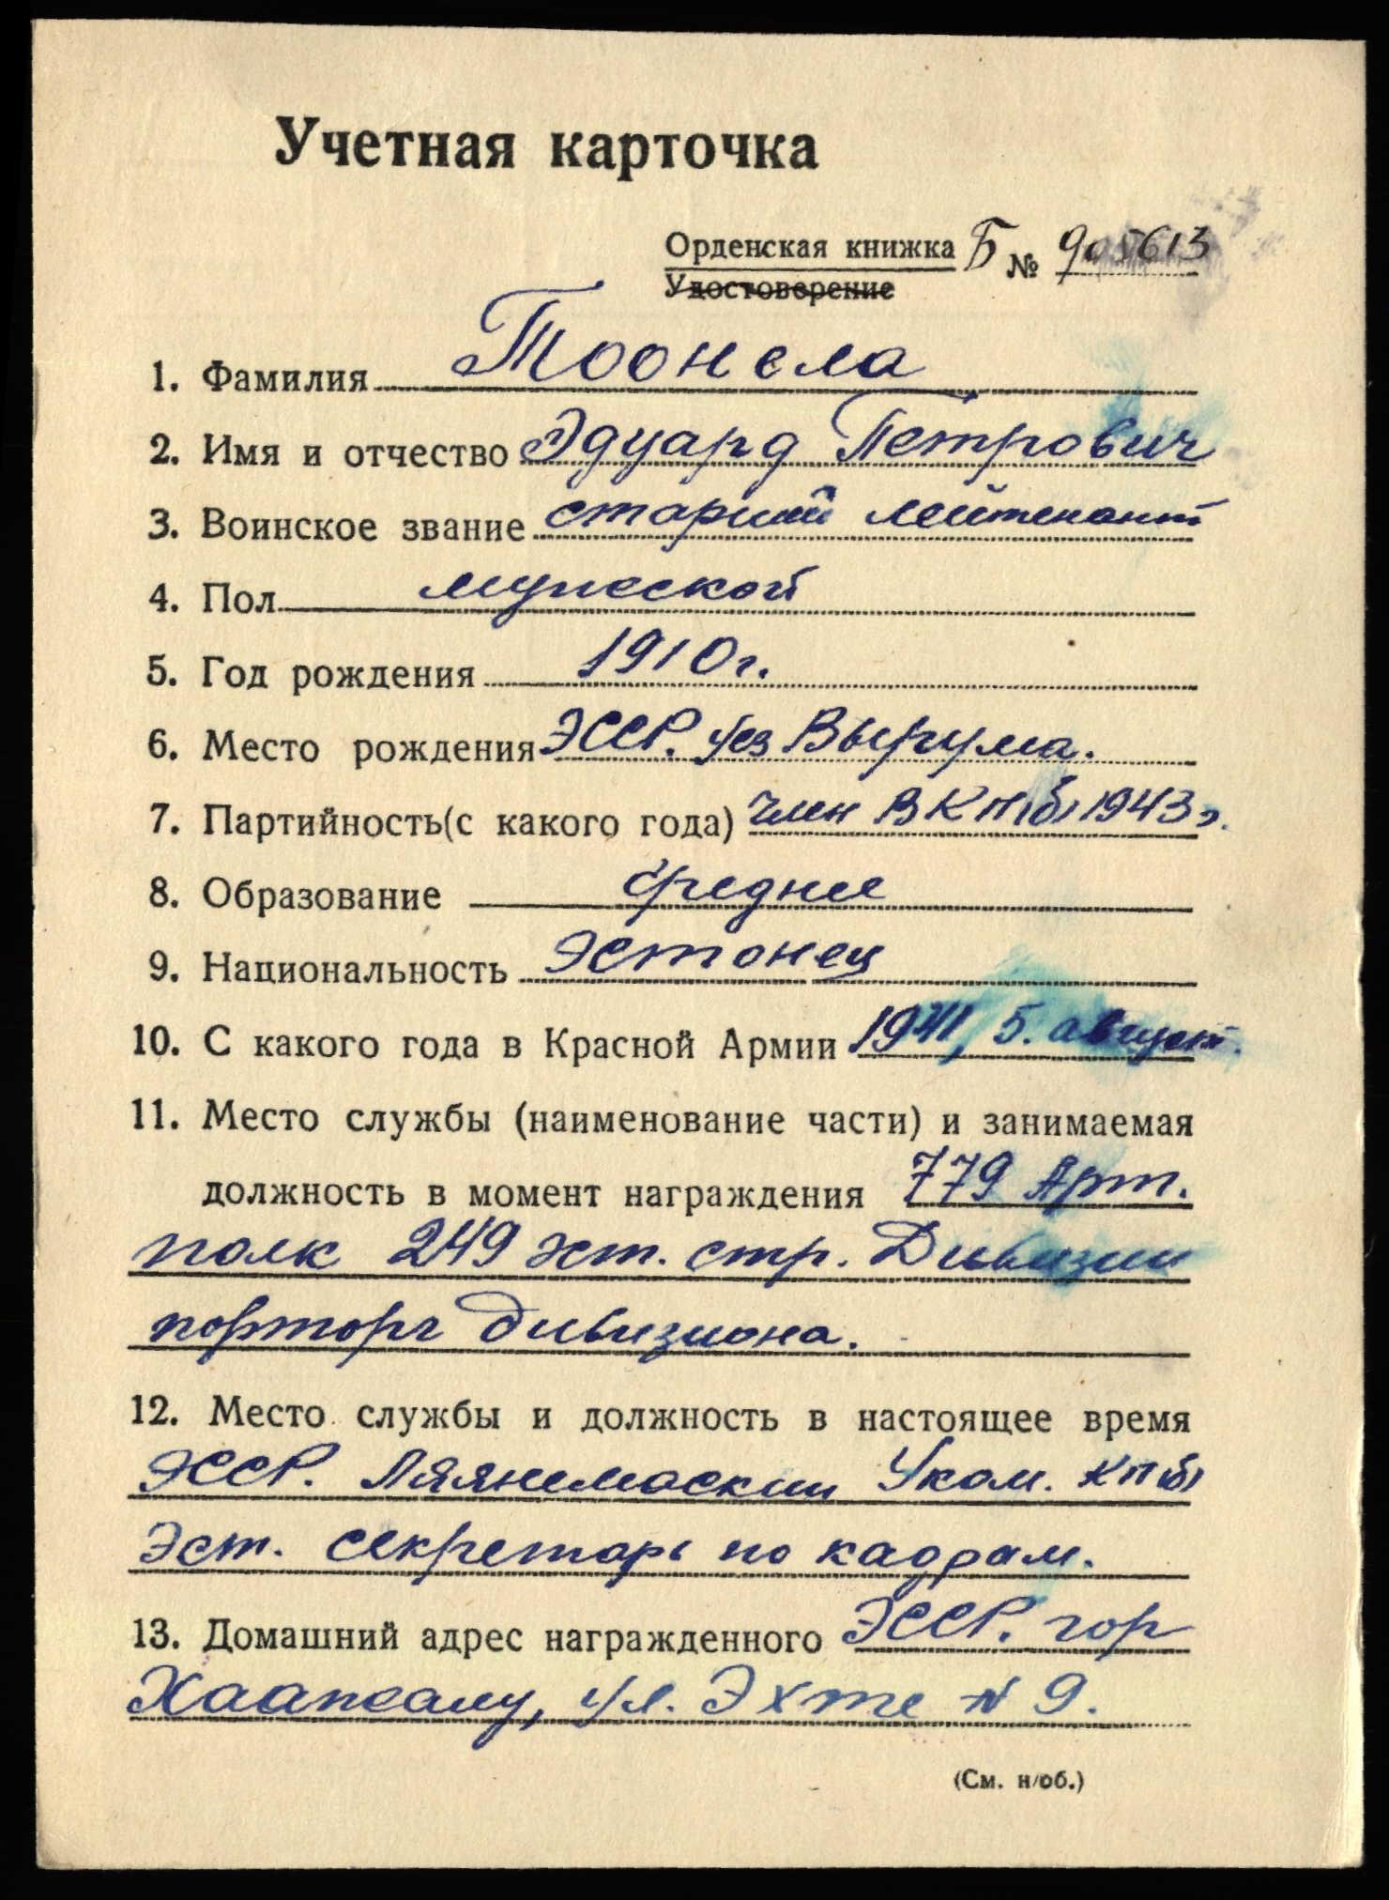 Учетная карточка
Орденская книжка Б № 905613
Удостоверение
1. Фамилия Тоонела
2. Имя и отчество Эдуард Петрович
3. Воинское звание старший лейтенант
4. Пол мужской
5. Год рождения 1910 г.
6. Место рождения ЭССР. уез Вырума.
7. Партийность (с какого года) член ВКП(б) 1943 г.
8. Образование среднее
9. Национальность Эстонец
10. С какого года в Красной Армии 1941, 5. август.
11. Место службы (наименование части) и занимаемая
должность в момент награждения 779 Арт.
полк 249 эст. стр. Дивизии
парторг дивизиона.
12. Место службы и должность в настоящее время
ЭССР. Ляянемаский Уком. КП(б)
Эст. секретарь по кадрам.
13. Домашний адрес награжденного ЭССР. гор
Хаапсалу, ул. Эхте № 9.
(См. н/об.)